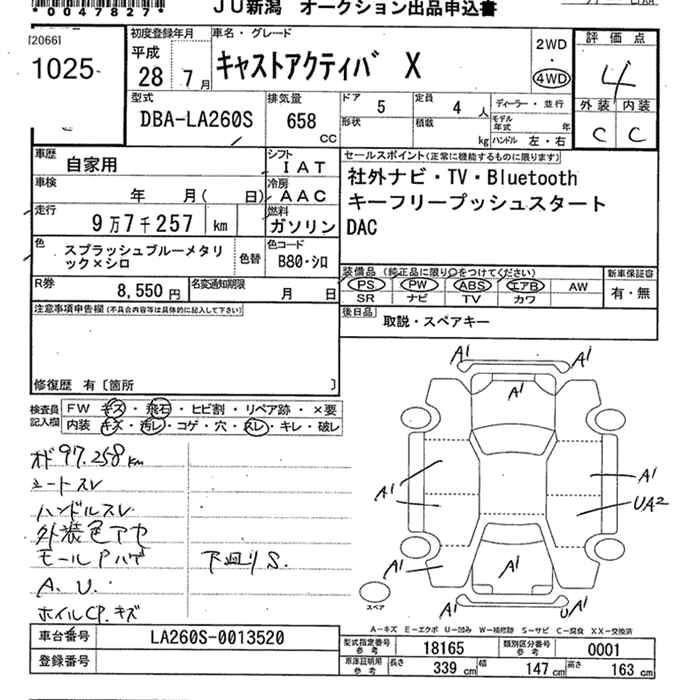 *0047827*
JU新潟 オークション出品申込書
[2066]
1025
初度登録年月
平成
28年 7月
車名・グレード
キャストアクティバ X
2WD
・
4WD
評価点
4
外装 内装
C C
型式
DBA-LA260S
排気量
658
CC
ドア 5
形状
定員 4人
積載 kg
ディーラー・並行
モデル年式 年
ハンドル 左・右
車歴 自家用
シフト IAT
車検 年 月( 日)
冷房 AAC
走行 9万7千257 km
燃料 ガソリン
色 スプラッシュブルーメタリック×シロ
色替
色コード B80・シロ
R券 8,550円
名変通知期限 月 日
セールスポイント(正常に機能するものに限ります)
社外ナビ・TV・Bluetooth
キーフリープッシュスタート
DAC
装備品 (純正品に限り○をつけてください)
PS PW ABS エアB AW
SR ナビ TV カワ
新車保証書
有・無
後日品 取説・スペアキー
注意事項申告欄(不具合内容等は具体的に記入して下さい)
修復歴 有〔箇所 〕
検査員記入欄
FW キズ・飛石・ヒビ割・リペア跡・×要
内装 キズ・汚レ・コゲ・穴・スレ・キレ・破レ
オド 97.258km
シートスレ
ハンドルスレ
外装色アセ
モールPハゲ
下廻りS.
A.U.
ホイルCP.キズ
A1 A1
A1
A1
A1
UA2
A1
A1
A1
スペア
A-キズ E-エクボ U-凹み W-補修跡 S-サビ C-腐食 XX-交換済
車台番号 LA260S-0013520
登録番号
型式指定番号 参考 18165
類別区分番号 参考 0001
車庫証明用 参考
長さ 339 cm
幅 147 cm
高さ 163 cm